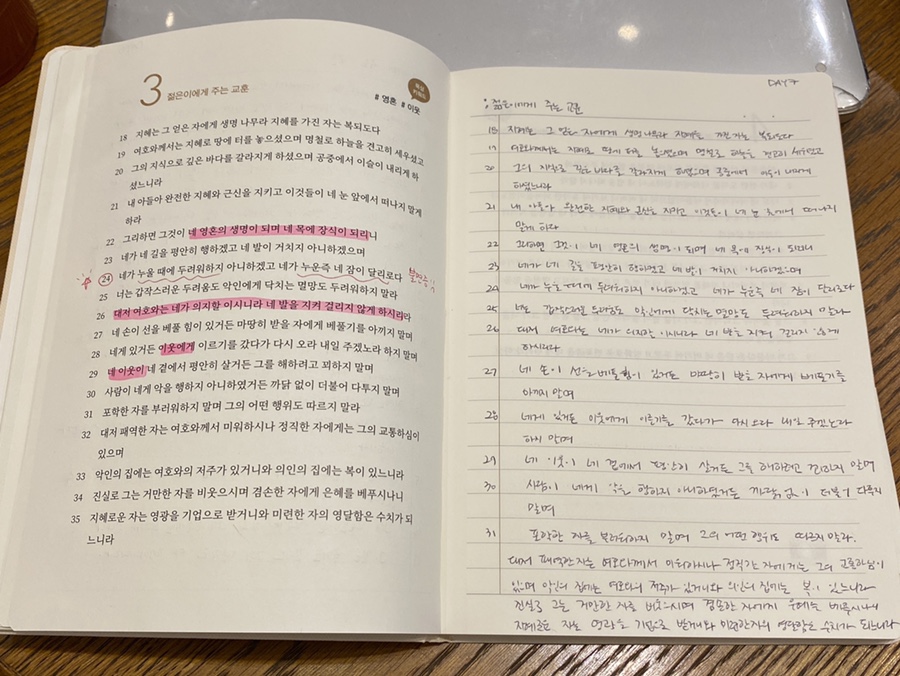 3 젊은이에게 주는 교훈
묵상
키워드
# 영혼 # 이웃
18 지혜는 그 얻은 자에게 생명 나무라 지혜를 가진 자는 복되도다
19 여호와께서는 지혜로 땅에 터를 놓으셨으며 명철로 하늘을 견고히 세우셨고
20 그의 지식으로 깊은 바다를 갈라지게 하셨으며 공중에서 이슬이 내리게 하
셨느니라
21 내 아들아 완전한 지혜와 근신을 지키고 이것들이 네 눈 앞에서 떠나지 말게
하라
22 그리하면 그것이 네 영혼의 생명이 되며 네 목에 장식이 되리니
23 네가 네 길을 평안히 행하겠고 네 발이 거치지 아니하겠으며
24 네가 누울 때에 두려워하지 아니하겠고 네가 누운즉 네 잠이 달리로다 불면증
25 너는 갑작스러운 두려움도 악인에게 닥치는 멸망도 두려워하지 말라
26 대저 여호와는 네가 의지할 이시니라 네 발을 지켜 걸리지 않게 하시리라
27 네 손이 선을 베풀 힘이 있거든 마땅히 받을 자에게 베풀기를 아끼지 말며
28 네게 있거든 이웃에게 이르기를 갔다가 다시 오라 내일 주겠노라 하지 말며
29 네 이웃이 네 곁에서 평안히 살거든 그를 해하려고 꾀하지 말며
30 사람이 네게 악을 행하지 아니하였거든 까닭 없이 더불어 다투지 말며
31 포학한 자를 부러워하지 말며 그의 어떤 행위도 따르지 말라
32 대저 패역한 자는 여호와께서 미워하시나 정직한 자에게는 그의 교통하심이
있으며
33 악인의 집에는 여호와의 저주가 있거니와 의인의 집에는 복이 있느니라
34 진실로 그는 거만한 자를 비웃으시며 겸손한 자에게 은혜를 베푸시나니
35 지혜로운 자는 영광을 기업으로 받거니와 미련한 자의 영달함은 수치가 되
느니라
DAY 7
: 젊은이에게 주는 교훈
18 지혜는 그 얻은 자에게 생명나무라 지혜를 가진 자는 복되도다
19 여호와께서는 지혜로 땅에 터를 놓으셨으며 명철로 하늘을 견고히 세우셨고
20 그의 지식으로 깊은 바다를 갈라지게 하셨으며 공중에서 이슬이 내리게
하셨느니라
21 내 아들아 완전한 지혜와 근신을 지키고 이것들이 네 눈 앞에서 떠나지
말게 하라
22 그리하면 그것이 네 영혼의 생명이 되며 네 목에 장식이 되리니
23 네가 네 길을 평안히 행하겠고 네 발이 거치지 아니하겠으며
24 네가 누울 때에 두려워하지 아니하겠고 네가 누운즉 네 잠이 달리로다
25 너는 갑작스러운 두려움도 악인에게 닥치는 멸망도 두려워하지 말라
26 대저 여호와는 네가 의지할 이시니라 네 발을 지켜 걸리지 않게
하시리라
27 네 손이 선을 베풀 힘이 있거든 마땅히 받을 자에게 베풀기를
아끼지 말며
28 네게 있거든 이웃에게 이르기를 갔다가 다시 오라 내일 주겠노라
하지 말며
29 네 이웃이 네 곁에서 평안히 살거든 그를 해하려고 꾀하지 말며
30 사람이 네게 악을 행하지 아니하였거든 까닭 없이 더불어 다투지
말며
31 포학한 자를 부러워하지 말며 그의 어떤 행위도 따르지 말라.
대저 패역한 자는 여호와께서 미워하시나 정직한 자에게는 그의 교통하심이
있으며 악인의 집에는 여호와의 저주가 있거니와 의인의 집에는 복이 있느니라
진실로 그는 거만한 자를 비웃으시며 겸손한 자에게 은혜를 베푸시나니
지혜로운 자는 영광을 기업으로 받거니와 미련한 자의 영달함은 수치가 되느니라